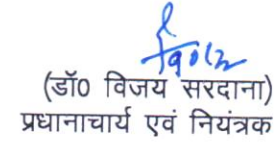 (डॉ0 विजय सरदाना)
प्रधानाचार्य एवं नियंत्रक